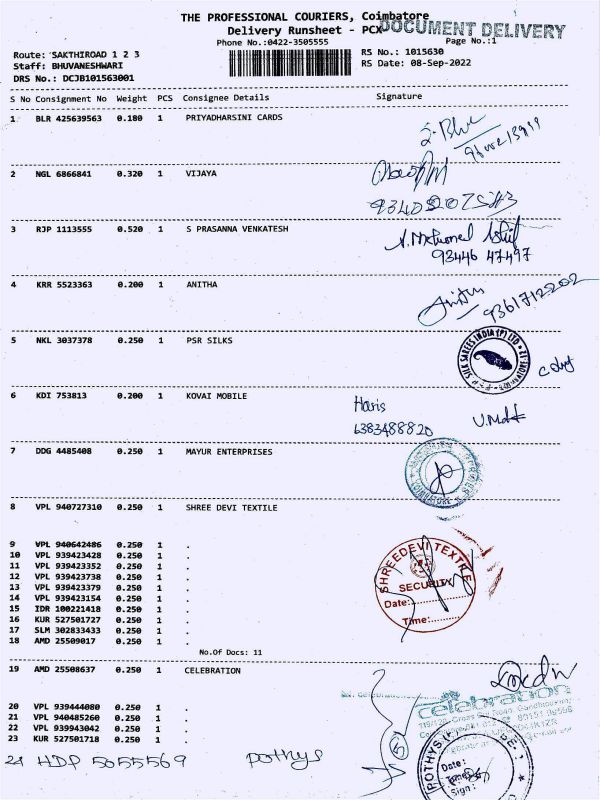 THE PROFESSIONAL COURIERS, Coimbatore
Delivery Runsheet - PCX
DOCUMENT DELIVERY
Phone No.:0422-3505555
Page No.:1
Route: SAKTHIROAD 1 2 3
RS No.: 1015630
Staff: BHUVANESHWARI
RS Date: 08-Sep-2022
DRS No.: DCJB101563001
S No Consignment No Weight PCS Consignee Details Signature
1 BLR 425639563 0.180 1 PRIYADHARSINI CARDS
2 NGL 6866841 0.320 1 VIJAYA
3 RJP 1113555 0.520 1 S PRASANNA VENKATESH
93446 47497
4 KRR 5523363 0.200 1 ANITHA
9361712202
5 NKL 3037378 0.250 1 PSR SILKS
SILK SAREES INDIA (P) LTD
6 KDI 753813 0.200 1 KOVAI MOBILE
Haris
6383488820
7 DDG 4485408 0.250 1 MAYUR ENTERPRISES
8 VPL 940727310 0.250 1 SHREE DEVI TEXTILE
9 VPL 940642486 0.250 1 .
10 VPL 939423428 0.250 1 .
11 VPL 939423352 0.250 1 .
12 VPL 939423738 0.250 1 .
13 VPL 939423379 0.250 1 .
14 VPL 939423154 0.250 1 .
15 IDR 100221418 0.250 1 .
16 KUR 527501727 0.250 1 .
17 SLM 302833433 0.250 1 .
18 AMD 25509017 0.250 1 .
SHREEDEVI TEXTILE
SECURITY
Date:
Time:
No.Of Docs: 11
19 AMD 25508637 0.250 1 CELEBRATION
celebration
20 VPL 939444080 0.250 1 .
21 VPL 940485260 0.250 1 .
22 VPL 939943042 0.250 1 .
23 KUR 527501718 0.250 1 .
24 HDP 5055569 pothys
5
POTHYS
Date:
Time:
Sign: